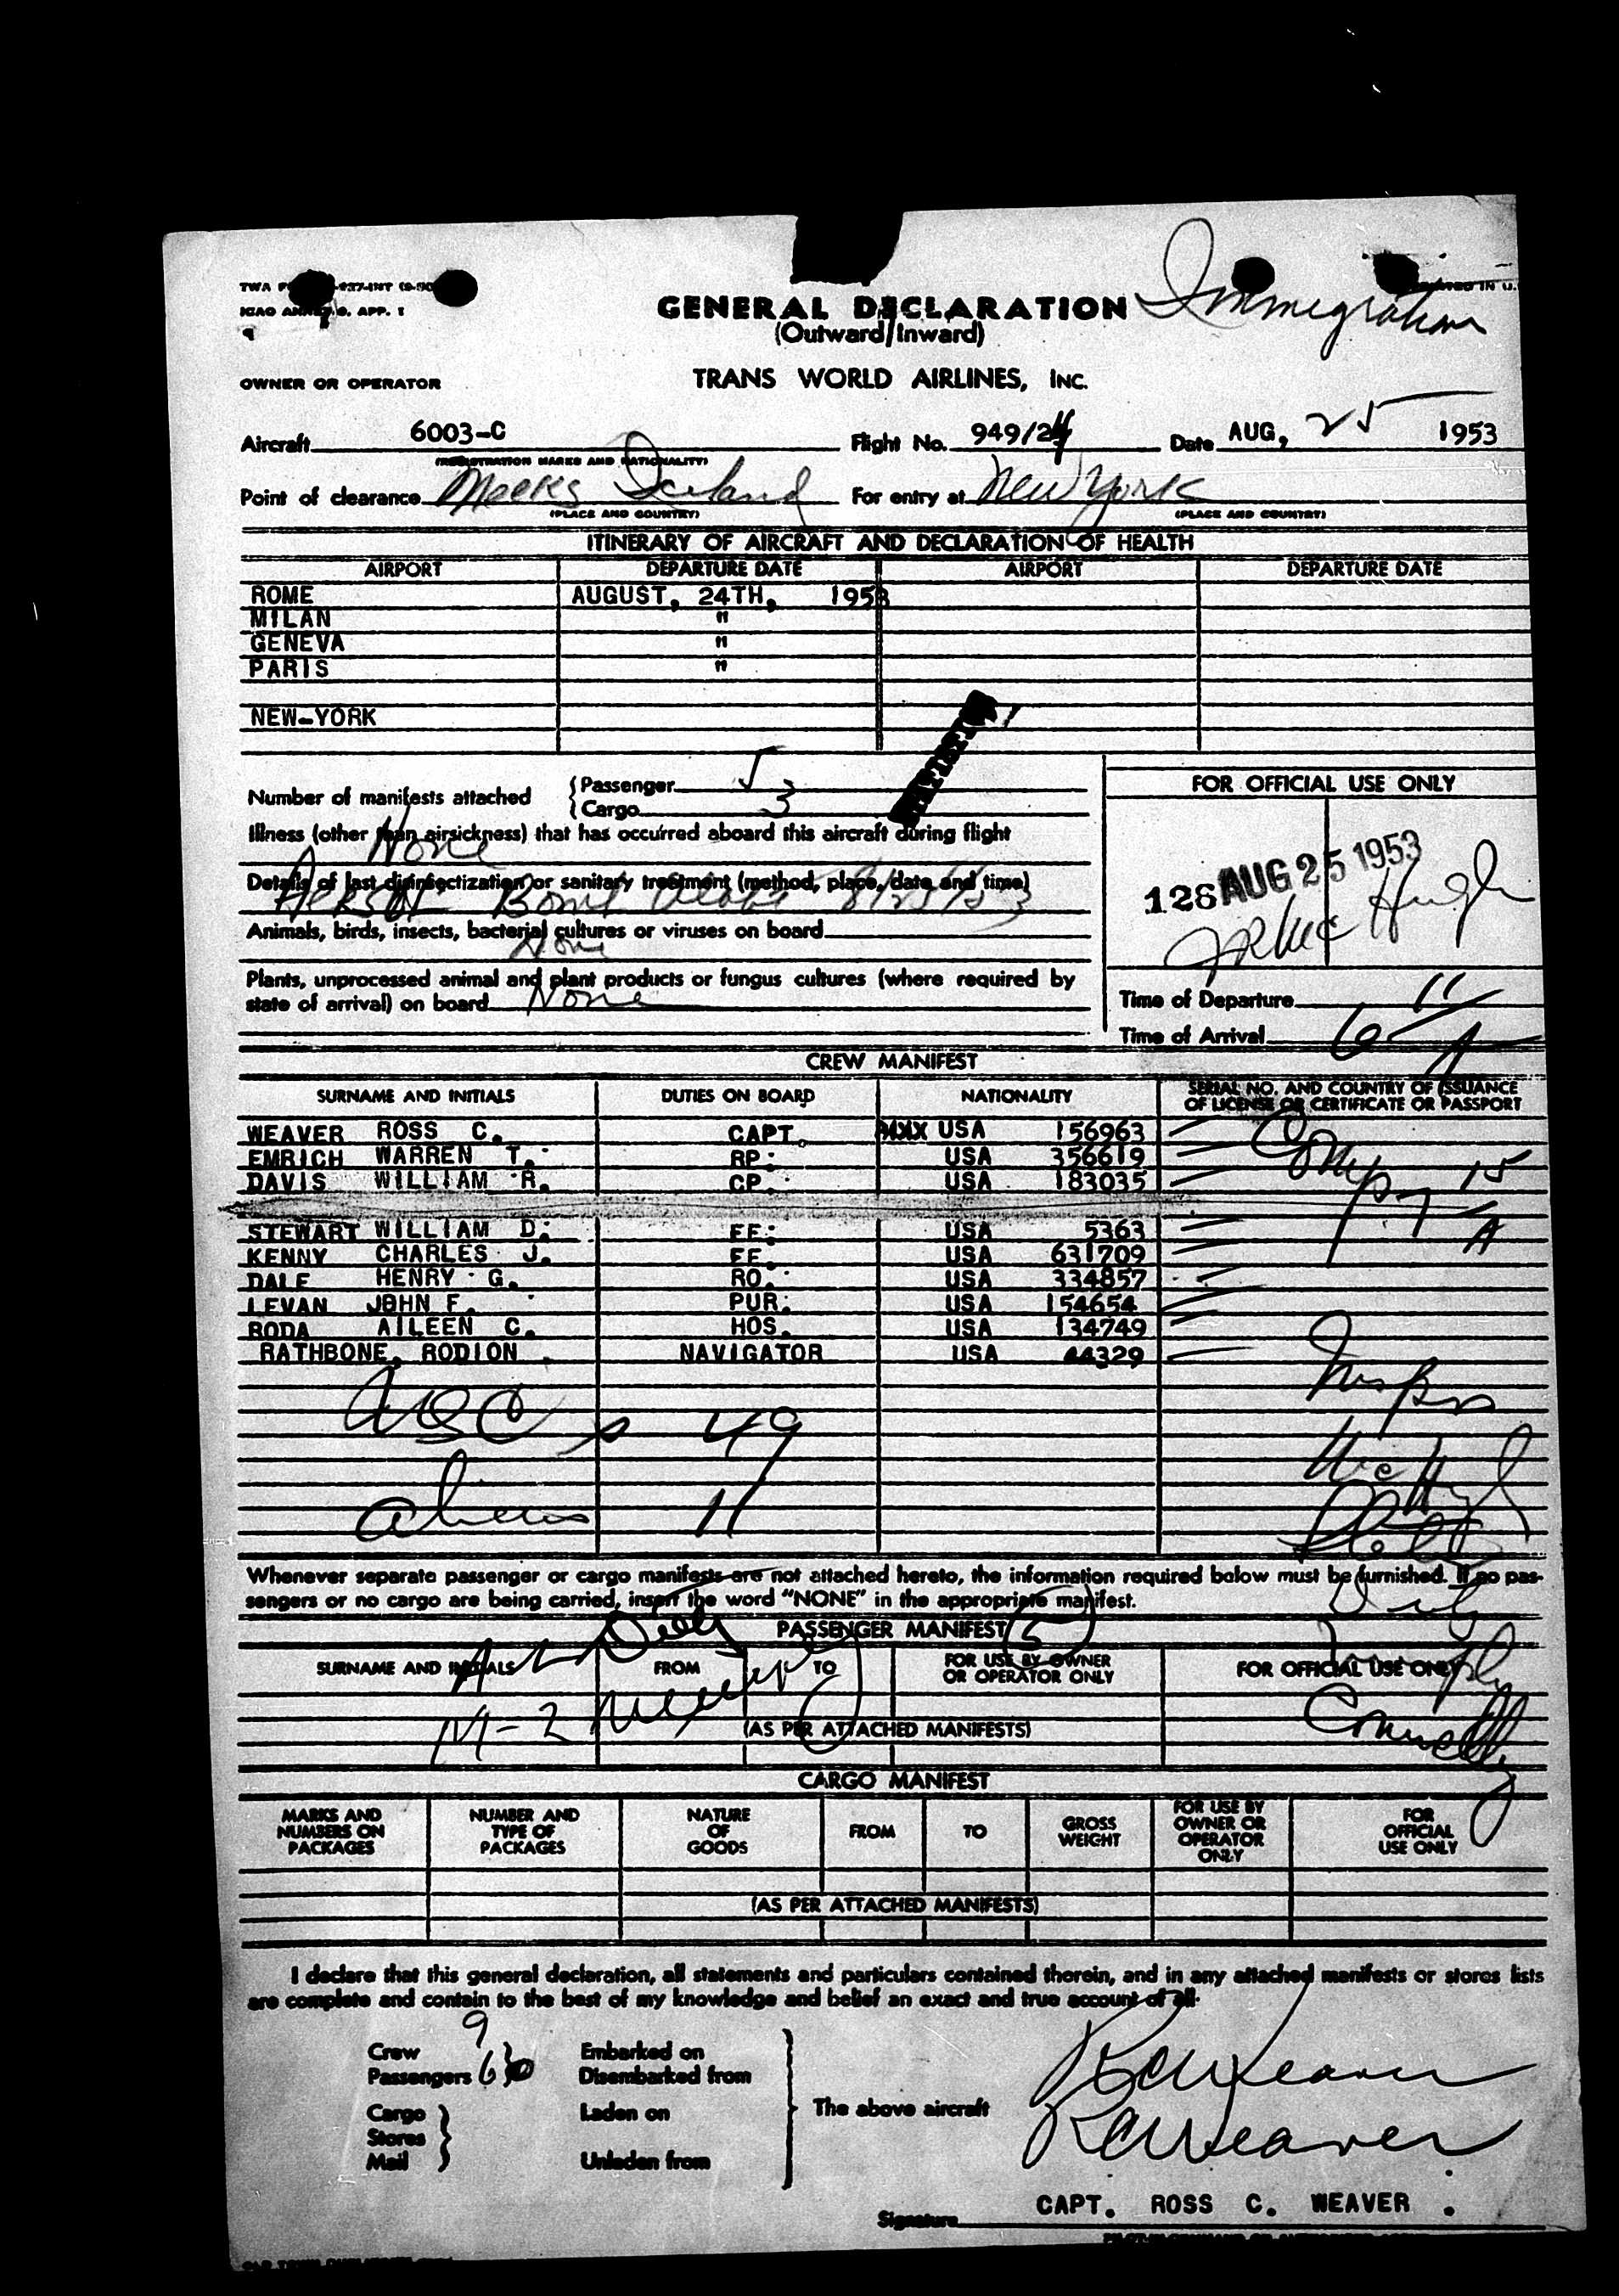 Immigration
GENERAL DECLARATION
(Outward/Inward)
OWNER OR OPERATOR TRANS WORLD AIRLINES, INC.
Aircraft 6003-C Flight No. 949/24 Date AUG, 25 1953
(REGISTRATION MARKS AND NATIONALITY)
Point of clearance Meeks Iceland For entry at New York
(PLACE AND COUNTRY) (PLACE AND COUNTRY)
ITINERARY OF AIRCRAFT AND DECLARATION OF HEALTH
AIRPORT DEPARTURE DATE AIRPORT DEPARTURE DATE
ROME AUGUST, 24TH, 1953
MILAN "
GENEVA "
PARIS "
NEW-YORK
Number of manifests attached { Passenger 5
{ Cargo 3
FOR OFFICIAL USE ONLY
Illness (other than airsickness) that has occurred aboard this aircraft during flight
None
Details of last disinsectization or sanitary treatment (method, place, date and time)
Aerosol Bomb 8/25/53
128 AUG 25 1953
Animals, birds, insects, bacterial cultures or viruses on board
None
Plants, unprocessed animal and plant products or fungus cultures (where required by
state of arrival) on board None
Time of Departure 11
Time of Arrival 6
CREW MANIFEST
SURNAME AND INITIALS DUTIES ON BOARD NATIONALITY SERIAL NO. AND COUNTRY OF ISSUANCE OF LICENSE OR CERTIFICATE OR PASSPORT
WEAVER ROSS C. CAPT. USA 156963
EMRICH WARREN T. RP. USA 356619
DAVIS WILLIAM R. CP. USA 183035
STEWART WILLIAM D. FE. USA 5363
KENNY CHARLES J. FE. USA 631709
DALE HENRY G. RO. USA 334857
LEVAN JOHN F. PUR. USA 154654
RODA AILEEN C. HOS. USA 134749
RATHBONE, RODION NAVIGATOR USA 44329
USC s 49
aliens 11
Whenever separate passenger or cargo manifests are not attached hereto, the information required below must be furnished. If no pas-
sengers or no cargo are being carried, insert the word "NONE" in the appropriate manifest.
PASSENGER MANIFEST (5)
SURNAME AND INITIALS FROM TO FOR USE BY OWNER OR OPERATOR ONLY FOR OFFICIAL USE ONLY
M-2
(AS PER ATTACHED MANIFESTS)
Connelly
CARGO MANIFEST
MARKS AND NUMBERS ON PACKAGES NUMBER AND TYPE OF PACKAGES NATURE OF GOODS FROM TO GROSS WEIGHT FOR USE BY OWNER OR OPERATOR ONLY FOR OFFICIAL USE ONLY
(AS PER ATTACHED MANIFESTS)
I declare that this general declaration, all statements and particulars contained therein, and in any attached manifests or stores lists
are complete and contain to the best of my knowledge and belief an exact and true account of all.
Crew 9 Embarked on
Passengers 60 Disembarked from
Cargo Laden on
Stores
Mail Unladen from
The above aircraft
RCWeaver
RCWeaver
CAPT. ROSS C. WEAVER .
Signature